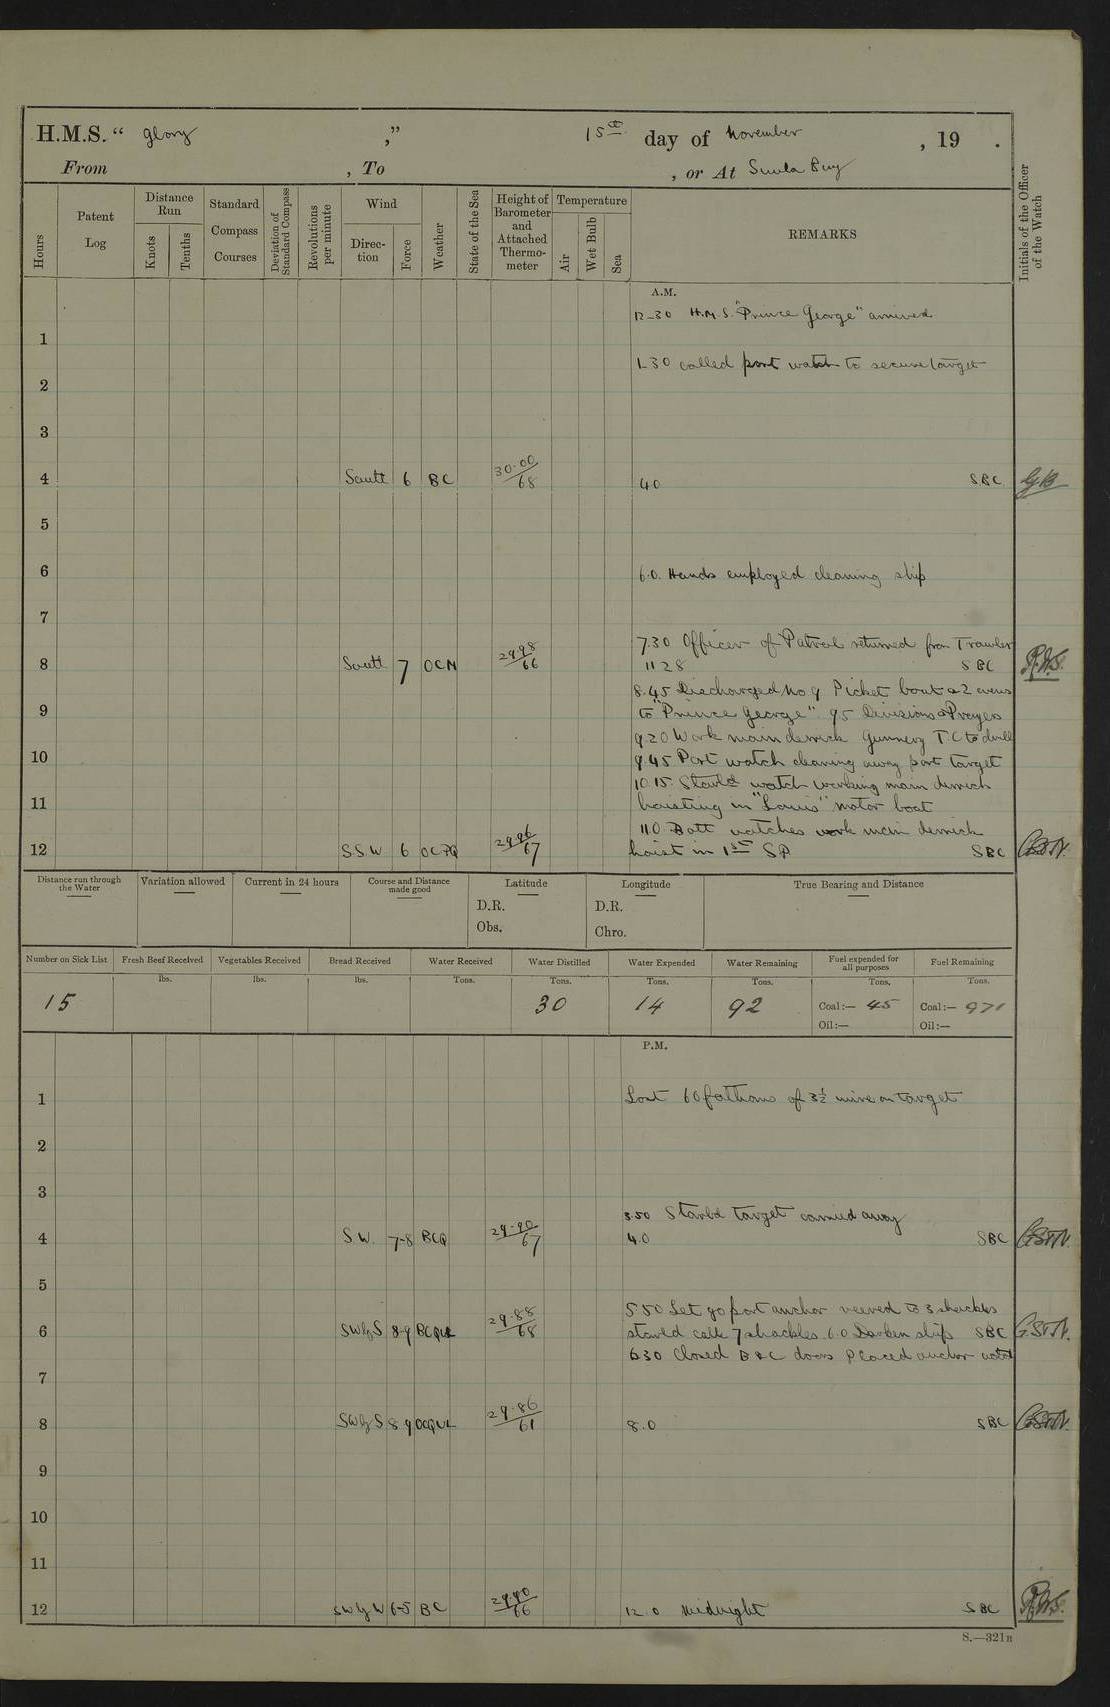 H.M.S. “ Glory ,” 15th day of November , 19 .
From , To , or At Suvla Bay
Hours
Patent Log
Distance Run
Knots
Tenths
Standard Compass Courses
Deviation of Standard Compass
Revolutions per minute
Wind
Direction
Force
Weather
State of the Sea
Height of Barometer and Attached Thermometer
Temperature
Air
Wet Bulb
Sea
REMARKS
Initials of the Officer of the Watch
A.M.
12-30 H.M.S. "Prince George" arrived
1
1.30 called port watch to secure target
2
3
4 South 6 BC 30.00/68 4.0 SBC GB
5
6 6.0. Hands employed cleaning ship
7
7.30 Officer of Patrol returned from Trawler
8 South 7 OCM 29.98/66 1128 SBC
8.45 Discharged No 9 Picket boat & 2 crews
9 to "Prince George". 9.5 Divisions & Prayers
9.20 Work main derrick Gunnery T.C to drill
10 9.45 Port watch clearing away port target
10.15. Starbd watch working main derrick
11 hoisting in "Louis" motor boat
11.0 Both watches work main derrick
12 SSW 6 OCPQ 29.96/67 hoist in 1st SP SBC
Distance run through the Water
Variation allowed
Current in 24 hours
Course and Distance made good
Latitude
D.R.
Obs.
Longitude
D.R.
Chro.
True Bearing and Distance
Number on Sick List
Fresh Beef Received
Vegetables Received
Bread Received
Water Received
Water Distilled
Water Expended
Water Remaining
Fuel expended for all purposes
Fuel Remaining
lbs. lbs. lbs. Tons. Tons. Tons. Tons. Tons. Tons.
15 30 14 92 Coal:— 45 Coal:— 971
Oil:— Oil:—
P.M.
1 Lost 60 fathoms of 3½ wire on target
2
3
3.50 Starbd target carried away
4 SW. 7-8 BCQ 29.90/67 4.0 SBC
5
5.50 Let go port anchor veered to 3 shackles
6 SWbyS 8-9 29.88/68 starbd cable 7 shackles. 6.0 Darken ship SBC
6.30 Closed B & C doors Placed anchor watch
7
8 SWbyS 8 9 OCQUL 29.86/61 8.0 SBC
9
10
11
12 SWbyW 6-5 BC 29.90/66 12.0 Midnight SBC
S.—321B